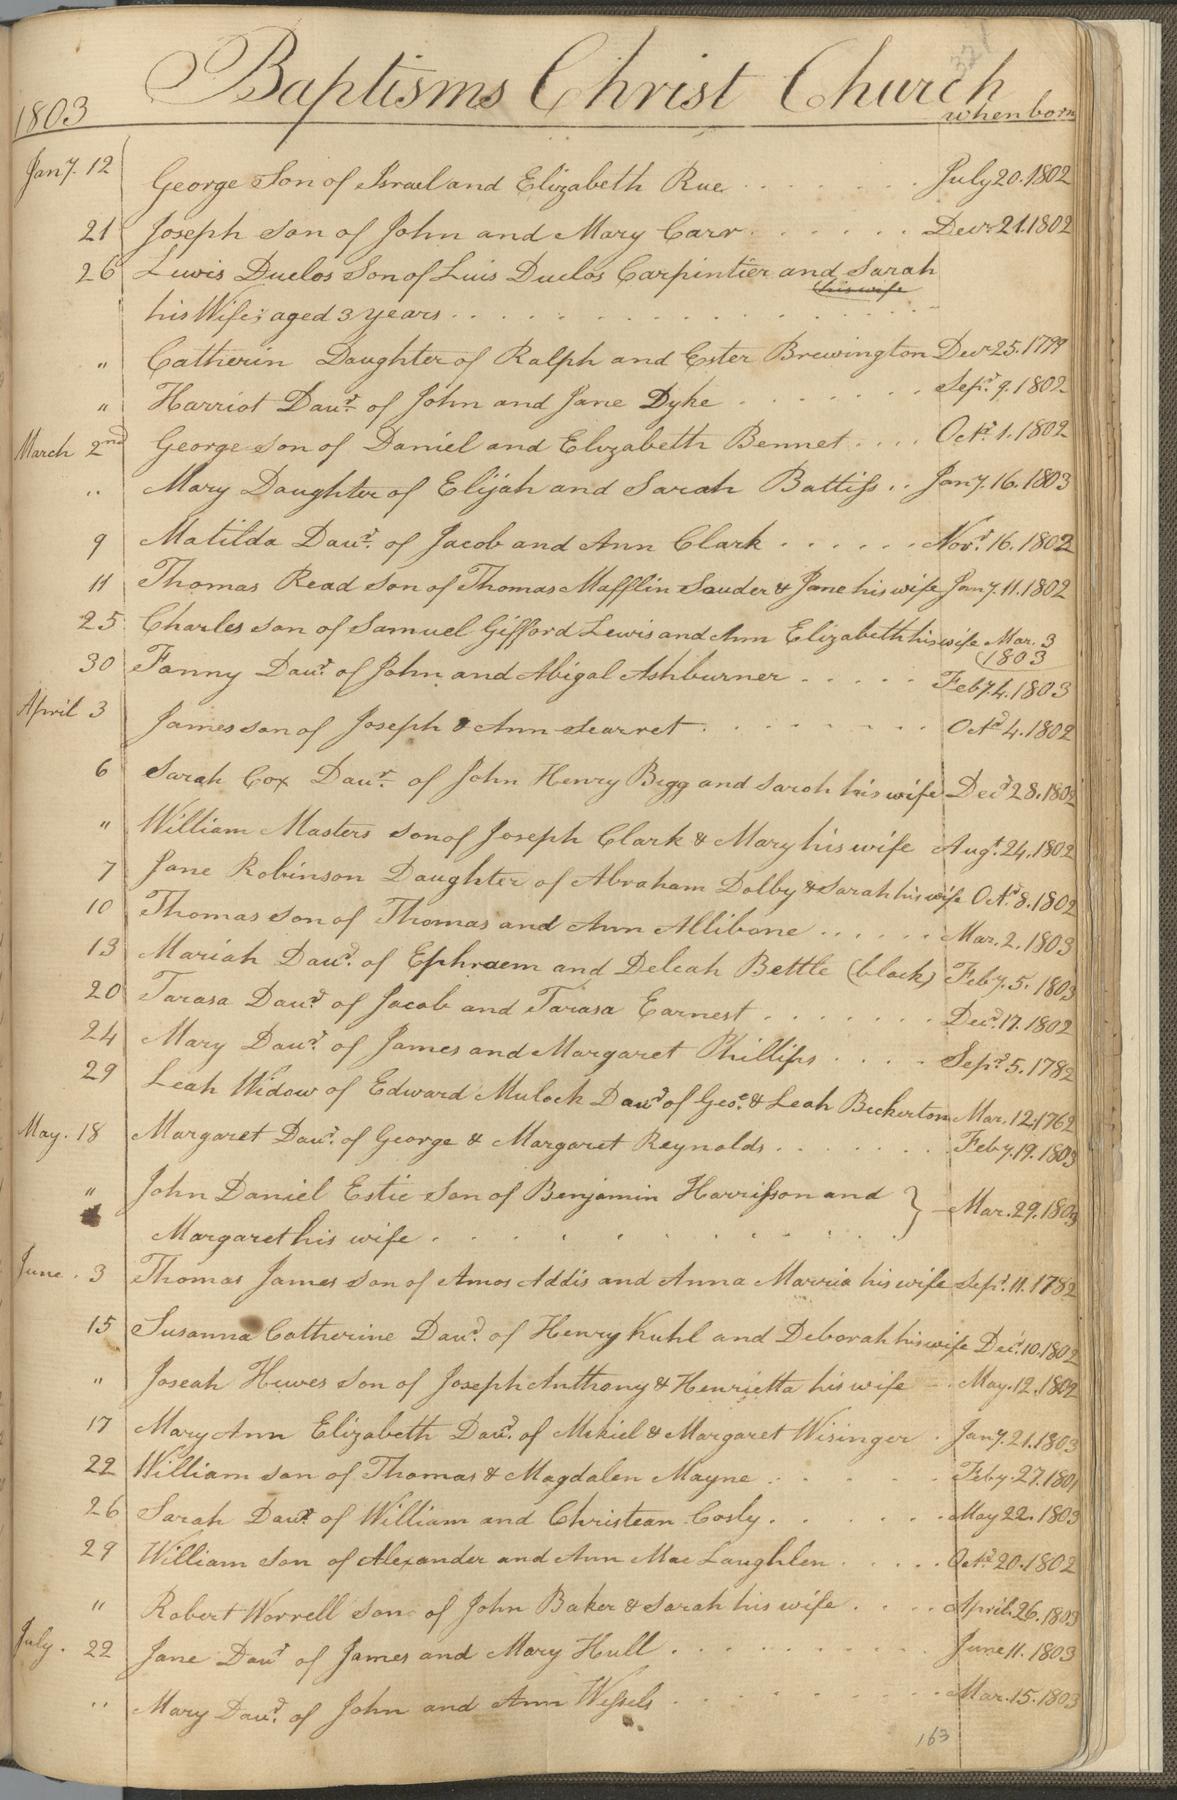 321
Baptisms Christ Church
1803 when born
Jany. 12 George Son of Israel and Elizabeth Rue . . . . . . July 20. 1802
21 Joseph Son of John and Mary Carr . . . . . . Decr 21. 1802
26 Lewis Duclos Son of Luis Duclos Carpintier and Sarah
his wife
his Wife; aged 3 years . . . . . . . . . . . .
" Catherin Daughter of Ralph and Ester Brewington Decr 25. 1799
" Harriot Daur. of John and Jane Dyke . . . . . . Sepr. 9. 1802
March 2nd George son of Daniel and Elizabeth Bennet . . . . Octr. 1. 1802
" Mary Daughter of Elijah and Sarah Battiss . . Jany. 16. 1803
9 Matilda Daur. of Jacob and Ann Clark . . . . . . Novr. 16. 1802
11 Thomas Read Son of Thomas Mafflin Souder & Jane his wife Jany. 11. 1802
25 Charles son of Samuel Gifford Lewis and Ann Elizabeth his wife Mar. 3
(1803
30 Fanny Daur. of John and Abigal Ashburner . . . . . Feby 4. 1803
April 3 James son of Joseph & Ann Scarret . . . . . . . . Octr 4. 1802
6 Sarah Cox Daur. of John Henry Bigg and Sarah his wife Decr 28. 1802
" William Masters son of Joseph Clark & Mary his wife Augt. 24. 1802
7 Jane Robinson Daughter of Abraham Dolby & Sarah his wife Octr 8. 1802
10 Thomas son of Thomas and Ann Allibone . . . . . . Mar. 2. 1803
13 Mariah Daur. of Ephraem and Deleah Bettle (black) Feby. 5. 1803
20 Tarasa Daur. of Jacob and Tarasa Earnest . . . . . . . Decr. 17. 1802
24 Mary Daur. of James and Margaret Phillips . . . . Sepr. 5. 1782
29 Leah Widow of Edward Mulock Daur of Geoe. & Leah Beckerton Mar. 12. 1762
May. 18 Margaret Daur. of George & Margaret Reynolds . . . . . . . Feby. 19. 1803
" John Daniel Estie Son of Benjamin Harrisson and } Mar. 29. 1803
Margaret his wife . . . . . . . . . . .
June . 3 Thomas James Son of Amos Addis and Anna Marria his wife Sepr. 11. 1782
15 Susanna Catherine Daur. of Henry Kuhl and Deborah his wife Decr. 10. 1802
" Joseah Hewes Son of Joseph Anthony & Henrietta his wife - . May. 12. 1802
17 Mary Ann Elizabeth Daur. of Mikiel & Margaret Wisinger . Jany. 21. 1803
22 William son of Thomas & Magdalen Mayne . . . . . Feby. 27. 1801
26 Sarah Daur. of William and Christean Cosly . . . . . . May 22. 1803
29 William Son of Alexander and Ann Mac Laughlen . . . . . Octr. 20. 1802
" Robert Worrell Son of John Baker & Sarah his wife . . . . April. 26. 1803
July . 22 Jane Daur of James and Mary Hull . . . . . . . . . June 11. 1803
" Mary Daur. of John and Ann Wessels . . . . . . . . . . Mar. 15. 1803
163